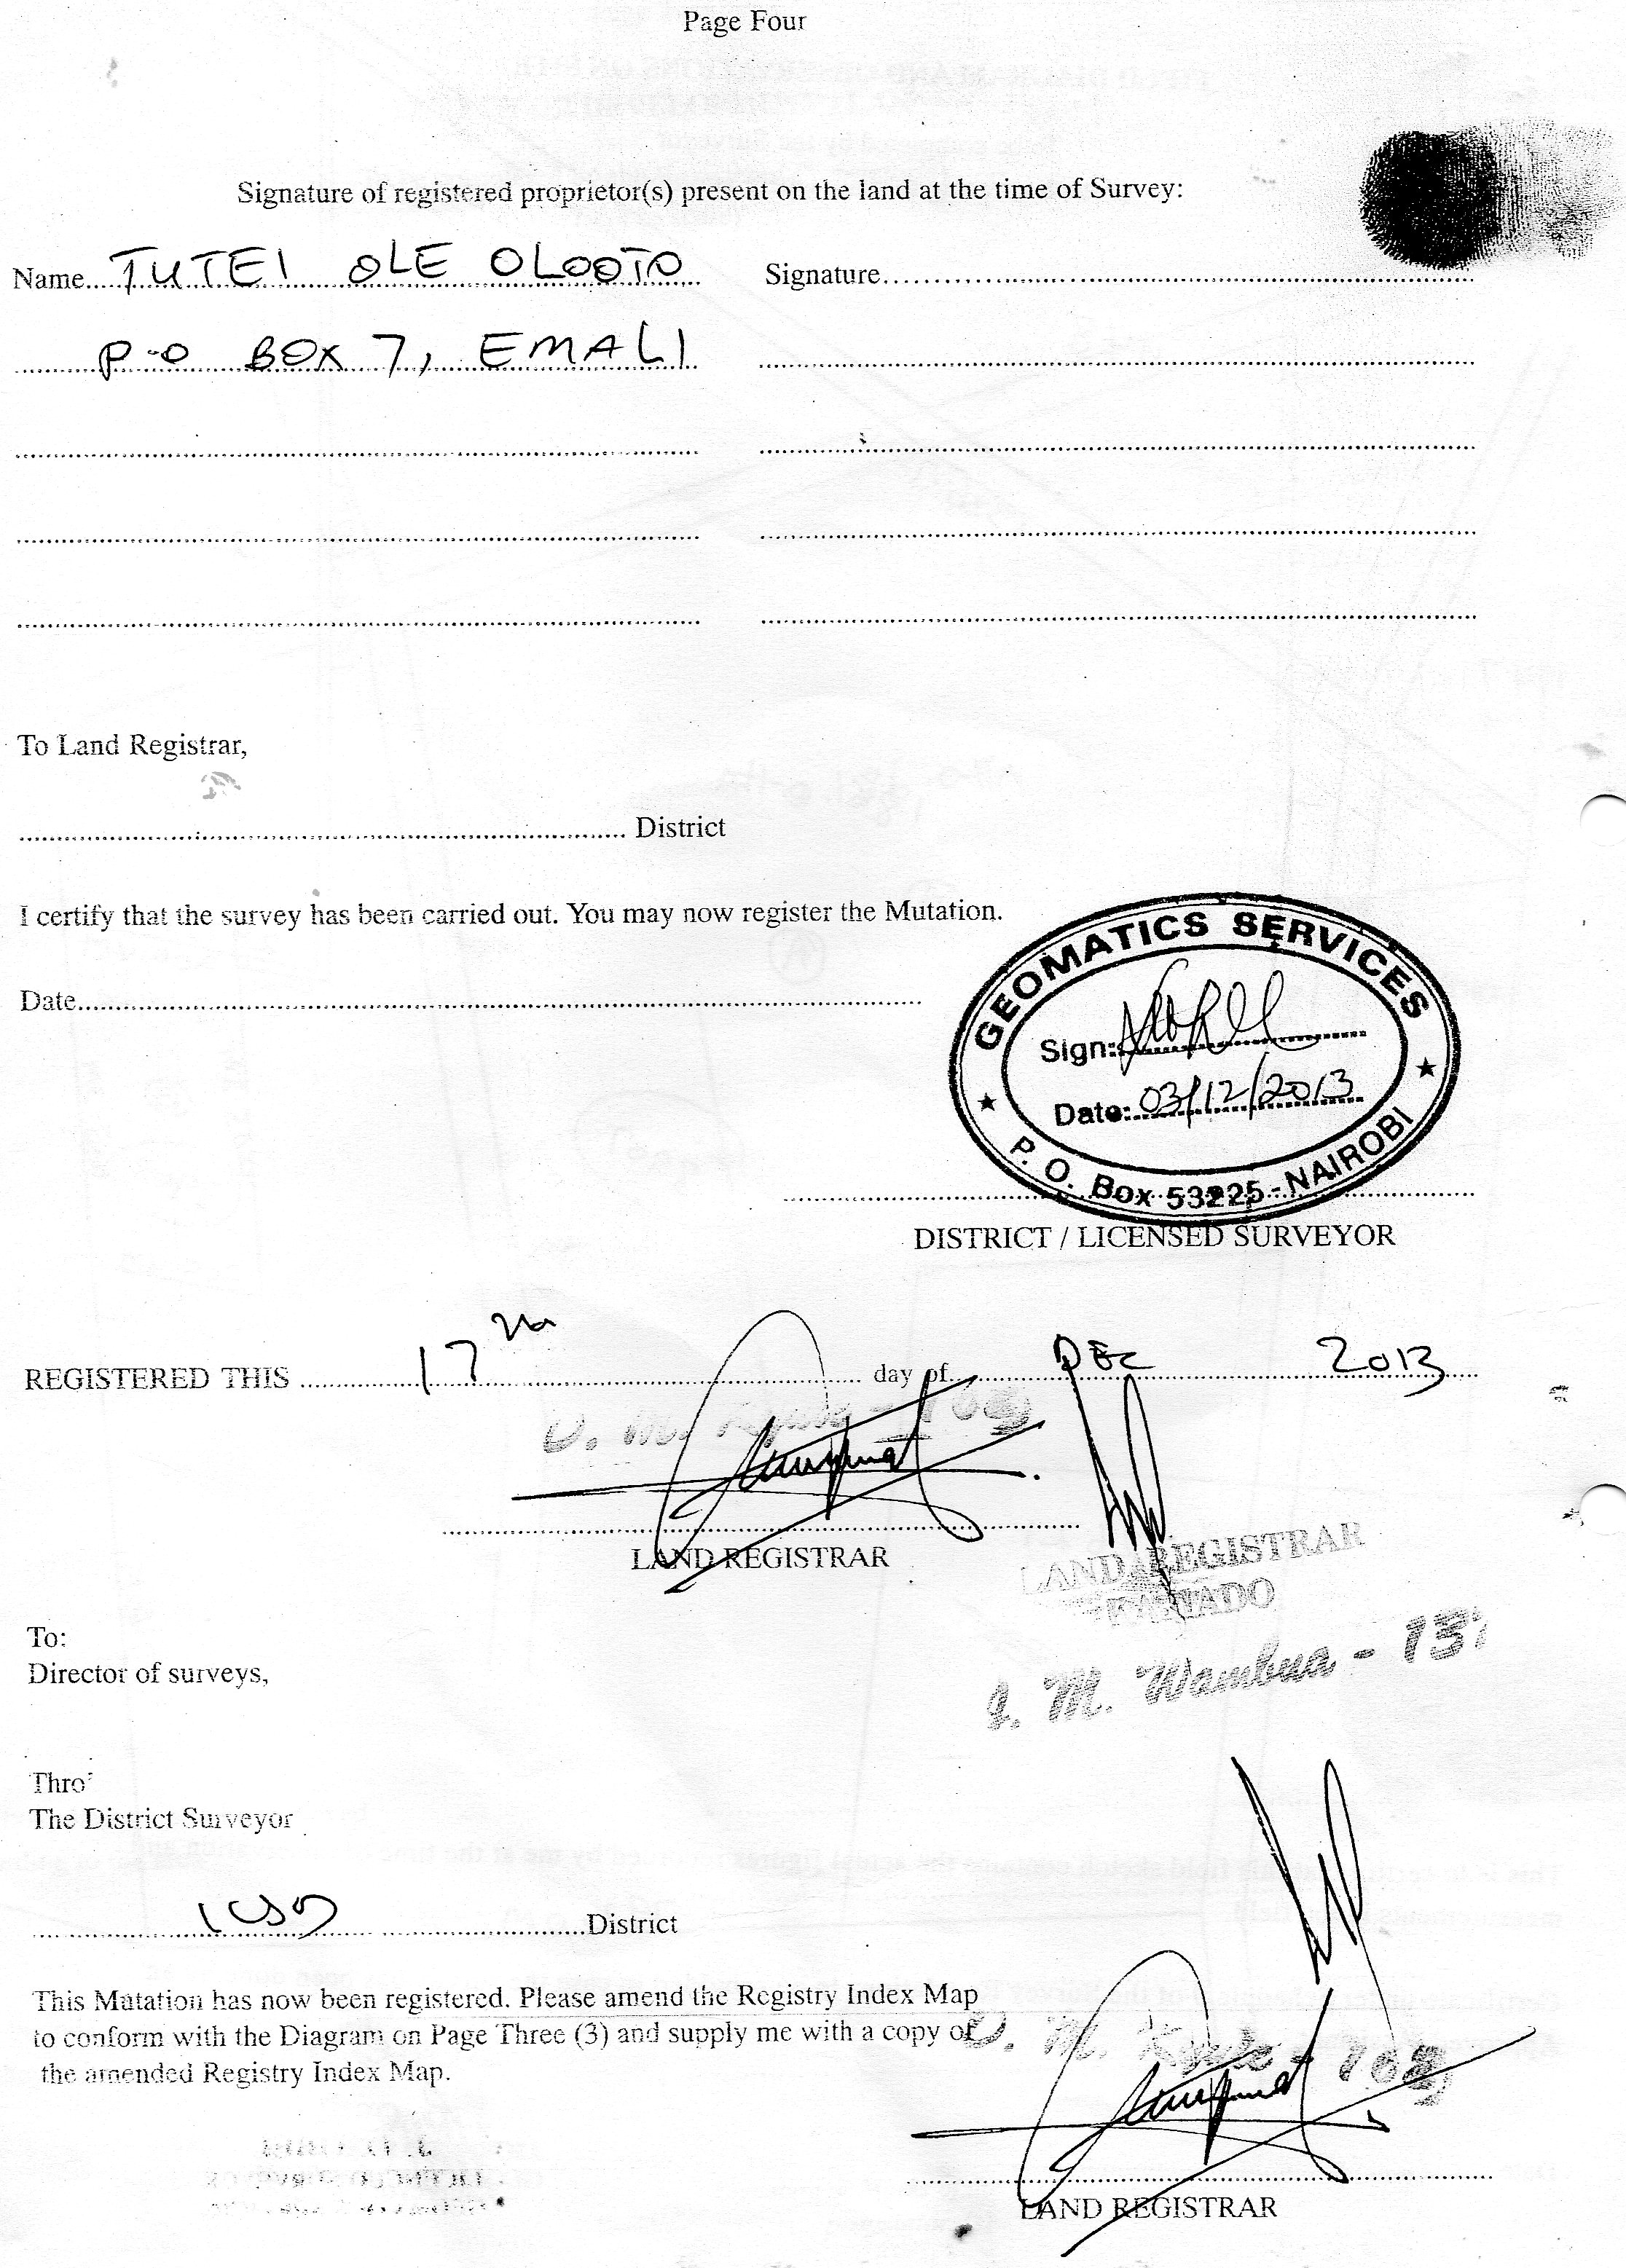 Page Four
Signature of registered proprietor(s) present on the land at the time of Survey:
Name TUTEI OLE OLOOTO Signature
P.O BOX 7, EMALI
To Land Registrar,
District
I certify that the survey has been carried out. You may now register the Mutation.
Date
GEOMATICS SERVICES
Sign:
Date: 03/12/2013
P. O. Box 53225 - NAIROBI
DISTRICT / LICENSED SURVEYOR
REGISTERED THIS 17 day of DEC 2013
LAND REGISTRAR
LAND REGISTRAR
M. Wambua - 13
To:
Director of surveys,
Thro'
The District Surveyor
District
This Mutation has now been registered. Please amend the Registry Index Map
to conform with the Diagram on Page Three (3) and supply me with a copy of
the amended Registry Index Map.
LAND REGISTRAR